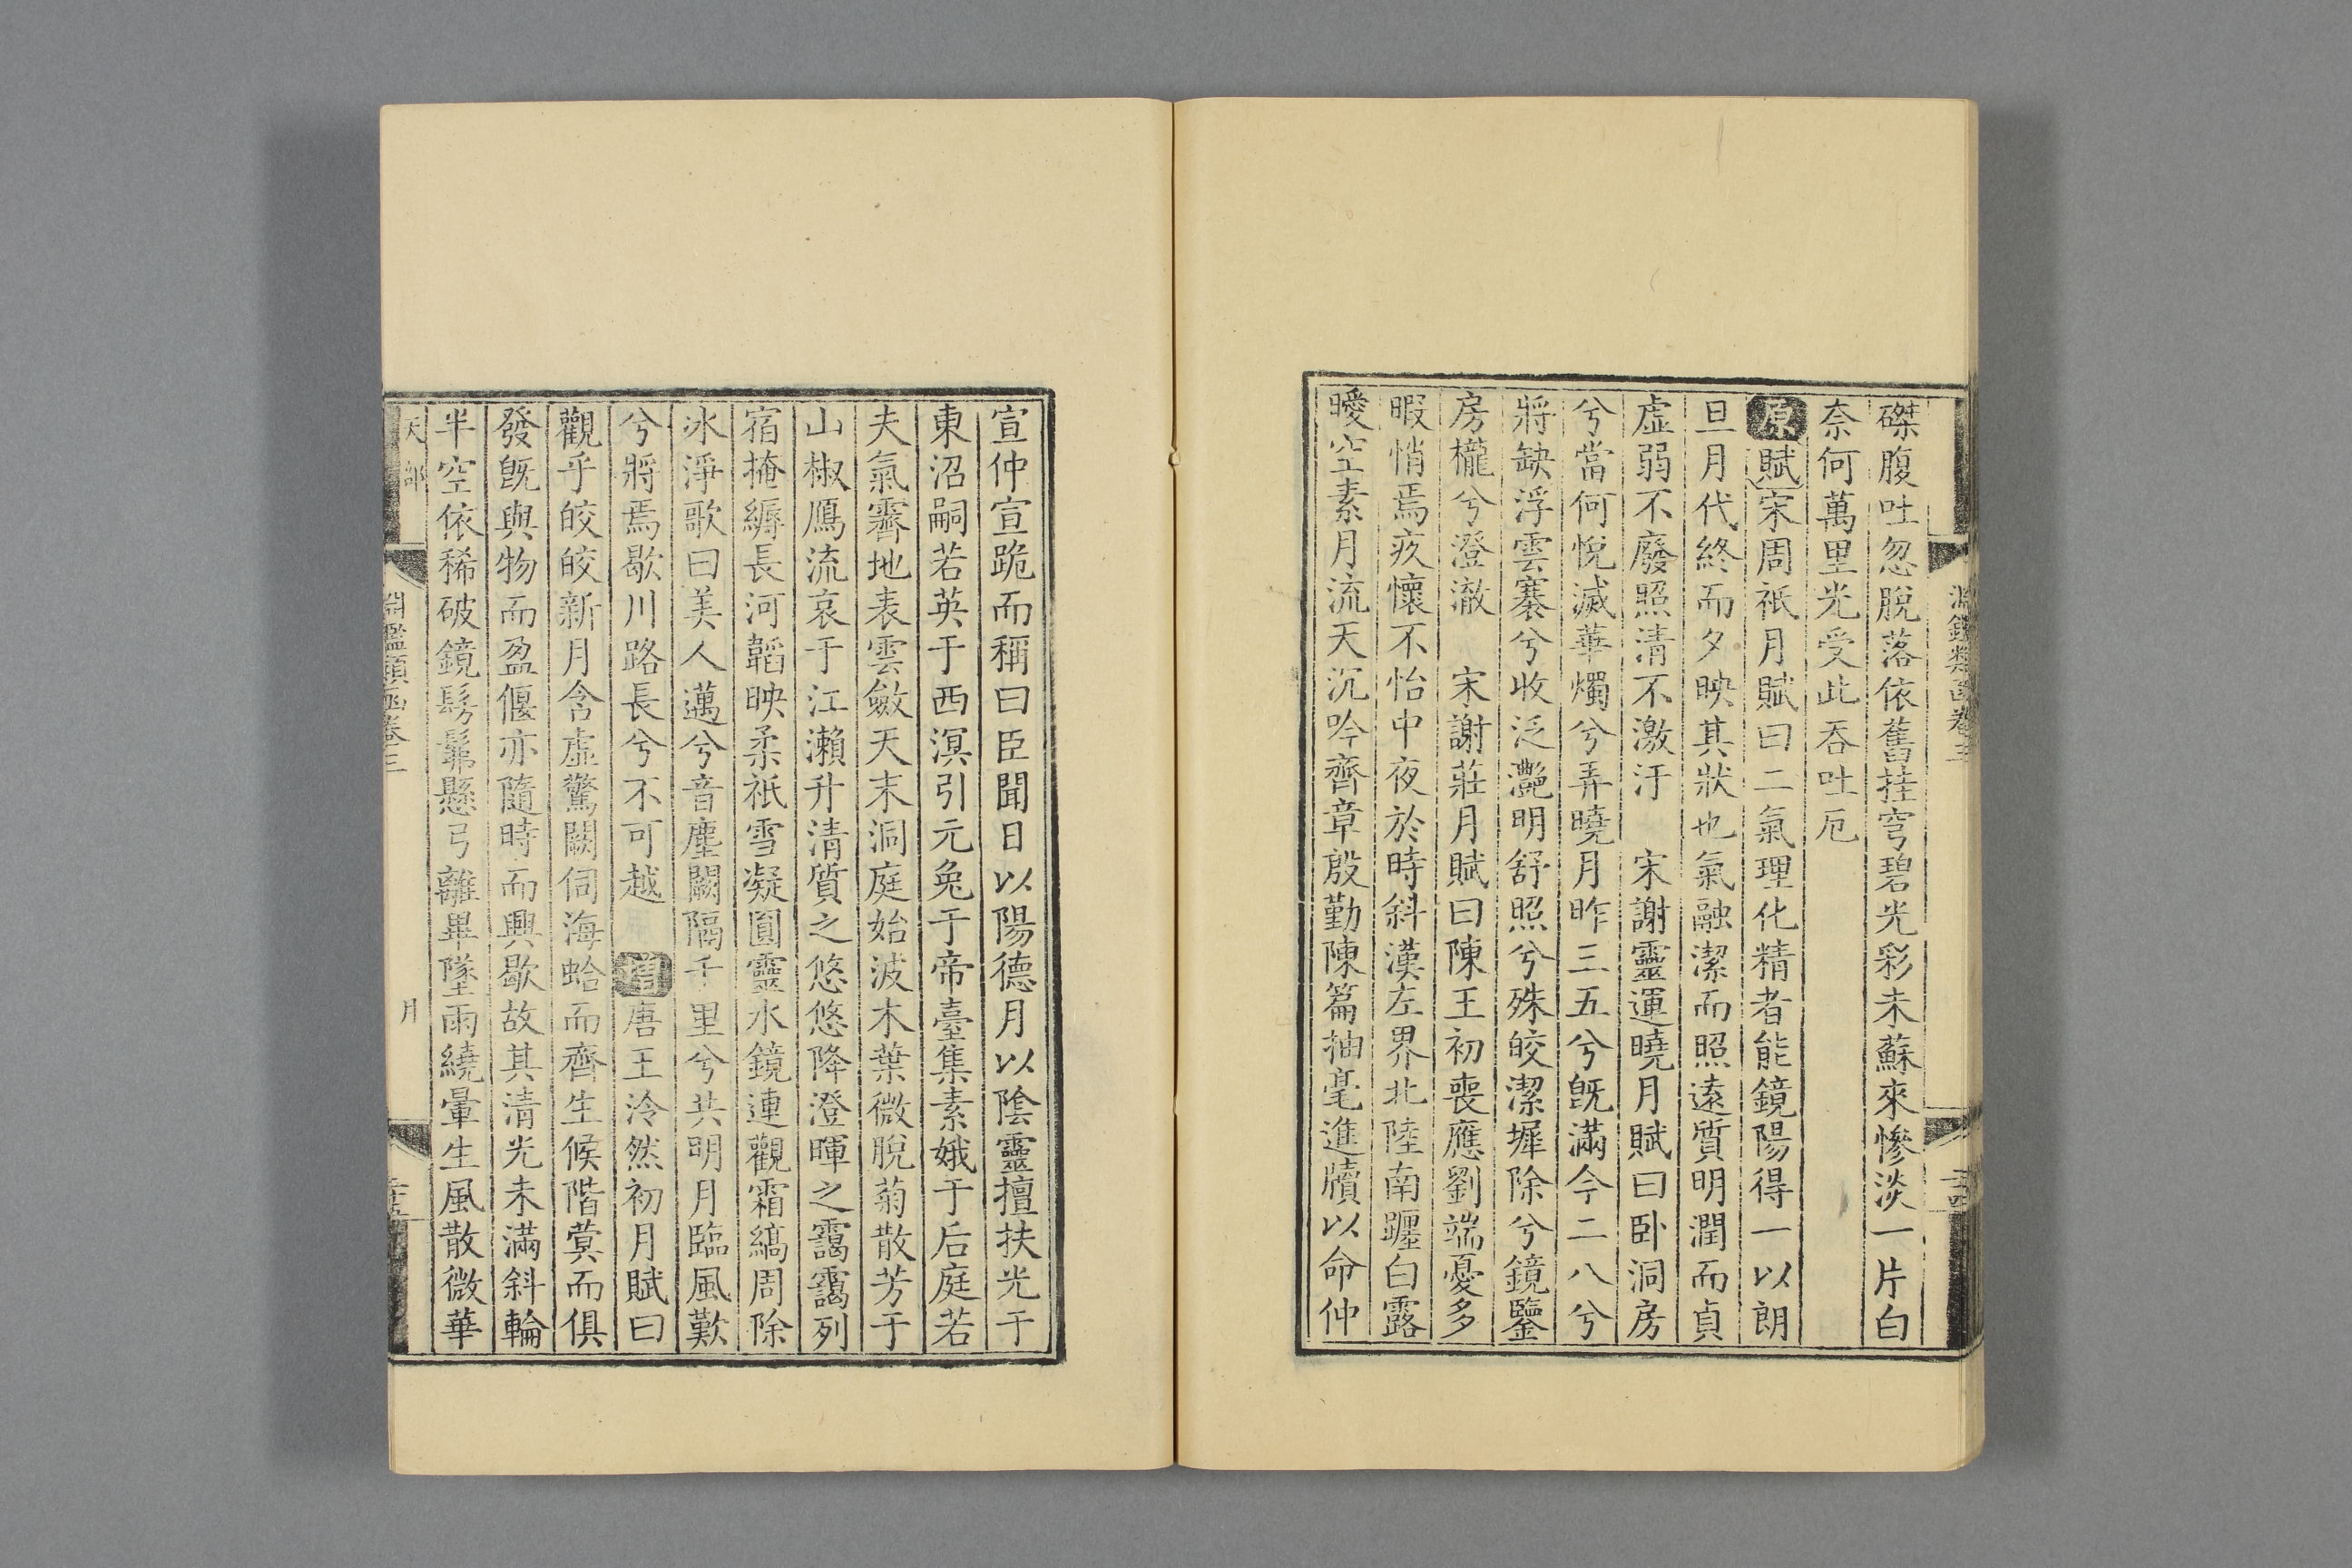 磔腹吐忽脫落依舊挂穹碧光彩未蘇來慘淡一片白
奈何萬里光受此吞吐厄
原賦宋周祇月賦曰二氣理化精者能鏡陽得一以朗
旦月代終而夕映其狀也氣融潔而照遠質明潤而貞
虛弱不廢照清不激汙　宋謝靈運曉月賦曰卧洞房
兮當何悅滅華燭兮弄曉月昨三五兮旣滿今二八兮
將缺浮雲褰兮收泛灔明舒照兮殊皎潔墀除兮鏡鑒
房櫳兮澄澈　宋謝莊月賦曰陳王初喪應劉端憂多
暇悄焉疚懷不怡中夜於時斜漢左界北陸南躔白露
曖空素月流天沉吟齊章殷勤陳篇抽毫進牘以命仲
宣仲宣跪而稱曰臣聞日以陽德月以陰靈擅扶光于
東沼嗣若英于西溟引元兔于帝臺集素娥于后庭若
夫氣霽地表雲斂天末洞庭始波木葉微脫菊散芳于
山椒鴈流哀于江瀨升清質之悠悠降澄暉之靄靄列
宿掩縟長河韜映柔祇雪凝圓靈水鏡連觀霜縞周除
冰淨歌曰美人邁兮音塵闕隔千里兮共明月臨風歎
兮將焉歇川路長兮不可越　增唐王泠然初月賦曰
觀乎皎皎新月含虛驚闕伺海蛤而齊生候階蓂而俱
發旣與物而盈偃亦隨時而興歇故其清光未滿斜輪
半空依稀破鏡髣髴懸弓離畢墜雨繞暈生風散微華
天部
淵鑑類函卷三
月